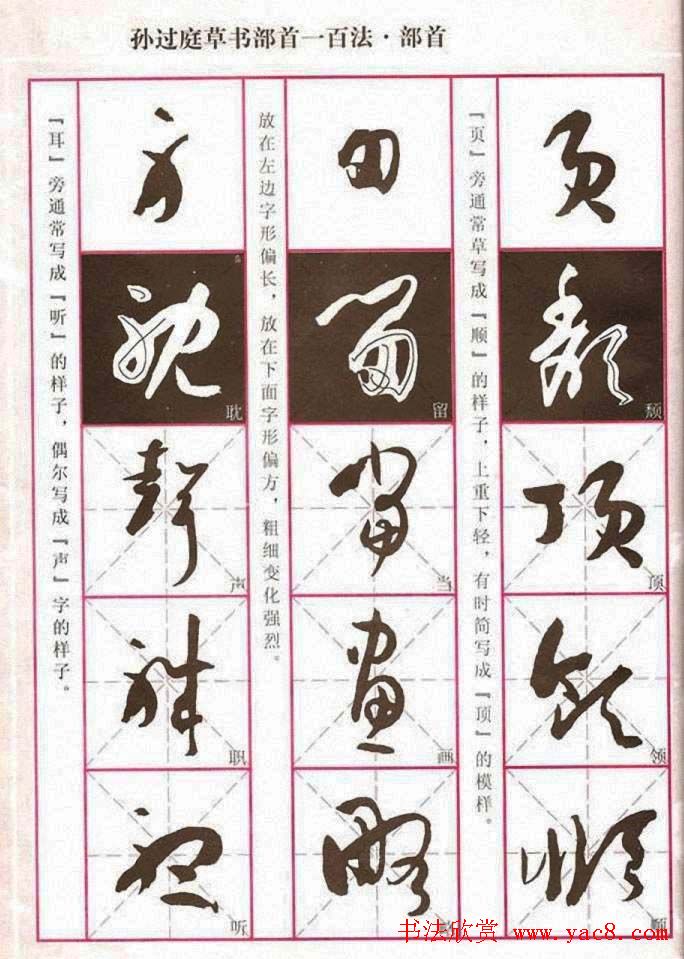 孙过庭草书部首一百法·部首
页
颓
顶
领
顺
『页』旁通常草写成『顺』的样子，上重下轻，有时简写成『顶』的模样。
田
留
当
画
略
放在左边字形偏长，放在下面字形偏方，粗细变化强烈。
耳
耽
声
职
听
『耳』旁通常写成『听』的样子，偶尔写成『声』字的样子。
书法欣赏 www.yac8.com